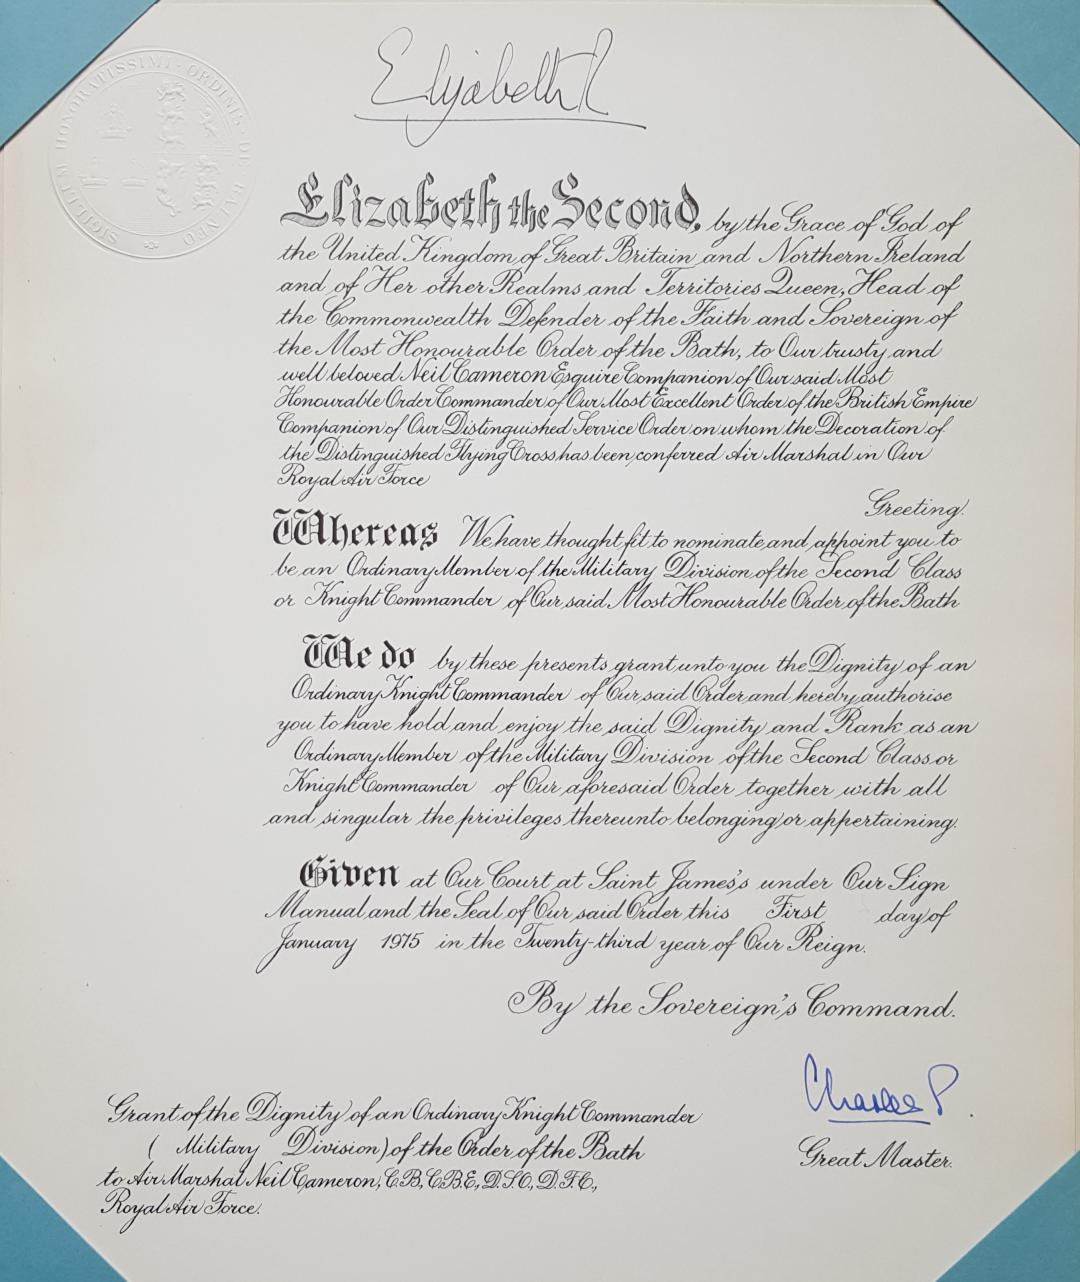 SIGILLUM HONORATISSIMI · ORDINIS · DE BALNEO
Elizabeth R
Elizabeth the Second, by the Grace of God of
the United Kingdom of Great Britain and Northern Ireland
and of Her other Realms and Territories Queen, Head of
the Commonwealth Defender of the Faith and Sovereign of
the Most Honourable Order of the Bath, to Our trusty and
well beloved Neil Cameron Esquire Companion of Our said Most
Honourable Order Commander of Our Most Excellent Order of the British Empire
Companion of Our Distinguished Service Order on whom the Decoration of
the Distinguished Flying Cross has been conferred Air Marshal in Our
Royal Air Force
Greeting.
Whereas We have thought fit to nominate and appoint you to
be an Ordinary Member of the Military Division of the Second Class
or Knight Commander of Our said Most Honourable Order of the Bath
We do by these presents grant unto you the Dignity of an
Ordinary Knight Commander of Our said Order and hereby authorise
you to have hold and enjoy the said Dignity and Rank as an
Ordinary Member of the Military Division of the Second Class or
Knight Commander of Our aforesaid Order together with all
and singular the privileges thereunto belonging or appertaining.
Given at Our Court at Saint James's under Our Sign
Manual and the Seal of Our said Order this First day of
January 1975 in the Twenty-third year of Our Reign.
By the Sovereign's Command.
Charles P.
Great Master.
Grant of the Dignity of an Ordinary Knight Commander
( Military Division) of the Order of the Bath
to Air Marshal Neil Cameron, C.B., C.B.E., D.S.O., D.F.C.,
Royal Air Force.